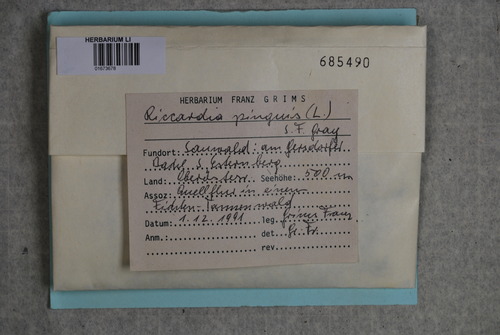 HERBARIUM LI
01673678
685490
HERBARIUM FRANZ GRIMS
Riccardia pinguis (L.)
S. F. Gray
Fundort: Sauwald: am
S. Esternberg
Land: Oberösterr. Seehöhe: 500 m
Assoz: in einem
Fichten-Tannenwald
Datum: 1.12.1991 leg. Grims Franz
Anm.: det. Gr. Fr.
rev.